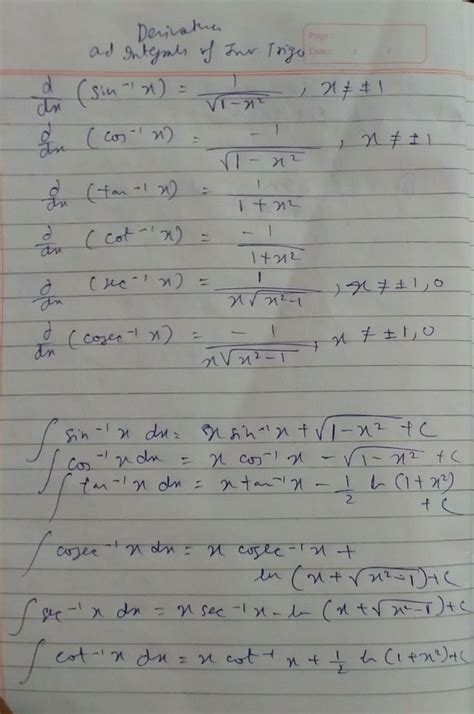 Derivatives
ad Integrals of Inv Trigo
Page :
Code : / /
d/dx (sin⁻¹ x) = 1/√(1-x²) , x ≠ ±1
d/dx (cos⁻¹ x) = -1/√(1-x²) , x ≠ ±1
d/dx (tan⁻¹ x) = 1/(1+x²)
d/dx (cot⁻¹ x) = -1/(1+x²)
d/dx (sec⁻¹ x) = 1/(x√(x²-1)) , x ≠ ±1, 0
d/dx (cosec⁻¹ x) = -1/(x√(x²-1)) , x ≠ ±1, 0
∫ sin⁻¹ x dx = x sin⁻¹ x + √(1-x²) + C
∫ cos⁻¹ x dx = x cos⁻¹ x - √(1-x²) + C
∫ tan⁻¹ x dx = x tan⁻¹ x - 1/2 ln (1+x²)
+ C
∫ cosec⁻¹ x dx = x cosec⁻¹ x +
ln (x + √(x²-1)) + C
∫ sec⁻¹ x dx = x sec⁻¹ x - ln (x + √(x²-1)) + C
∫ cot⁻¹ x dx = x cot⁻¹ x + 1/2 ln (1+x²) + C